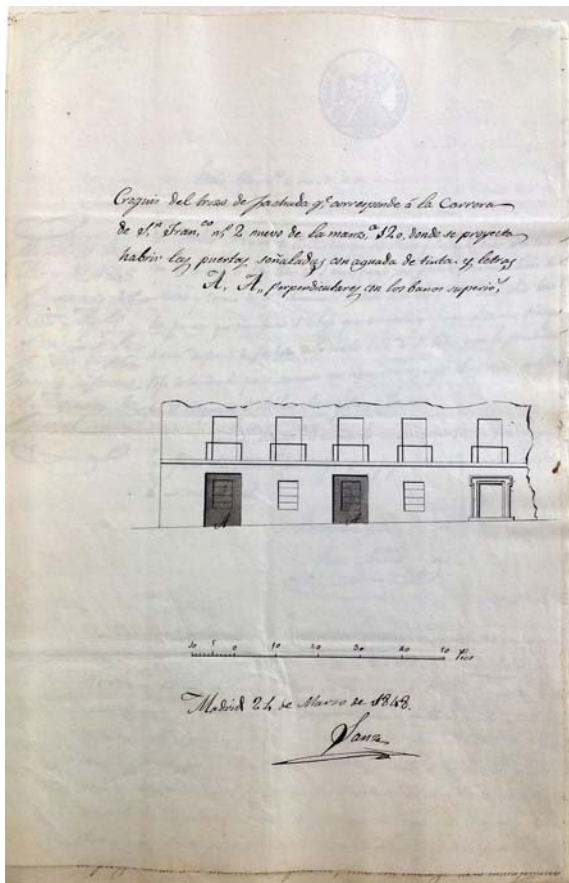 Croquis del trozo de fachada q.e corresponde á la Carrera
de S.n Fran.co n.o 2 nuevo de la manz.a 120, donde se proyecta
habrir las puertas, señaladas con aguada de tinta y letras
A, A,, perpendiculares con los banos superio.s
A A
10 5 0 10 20 30 40 50 Pies
Madrid 24 de Marzo de 1848.
Sanz